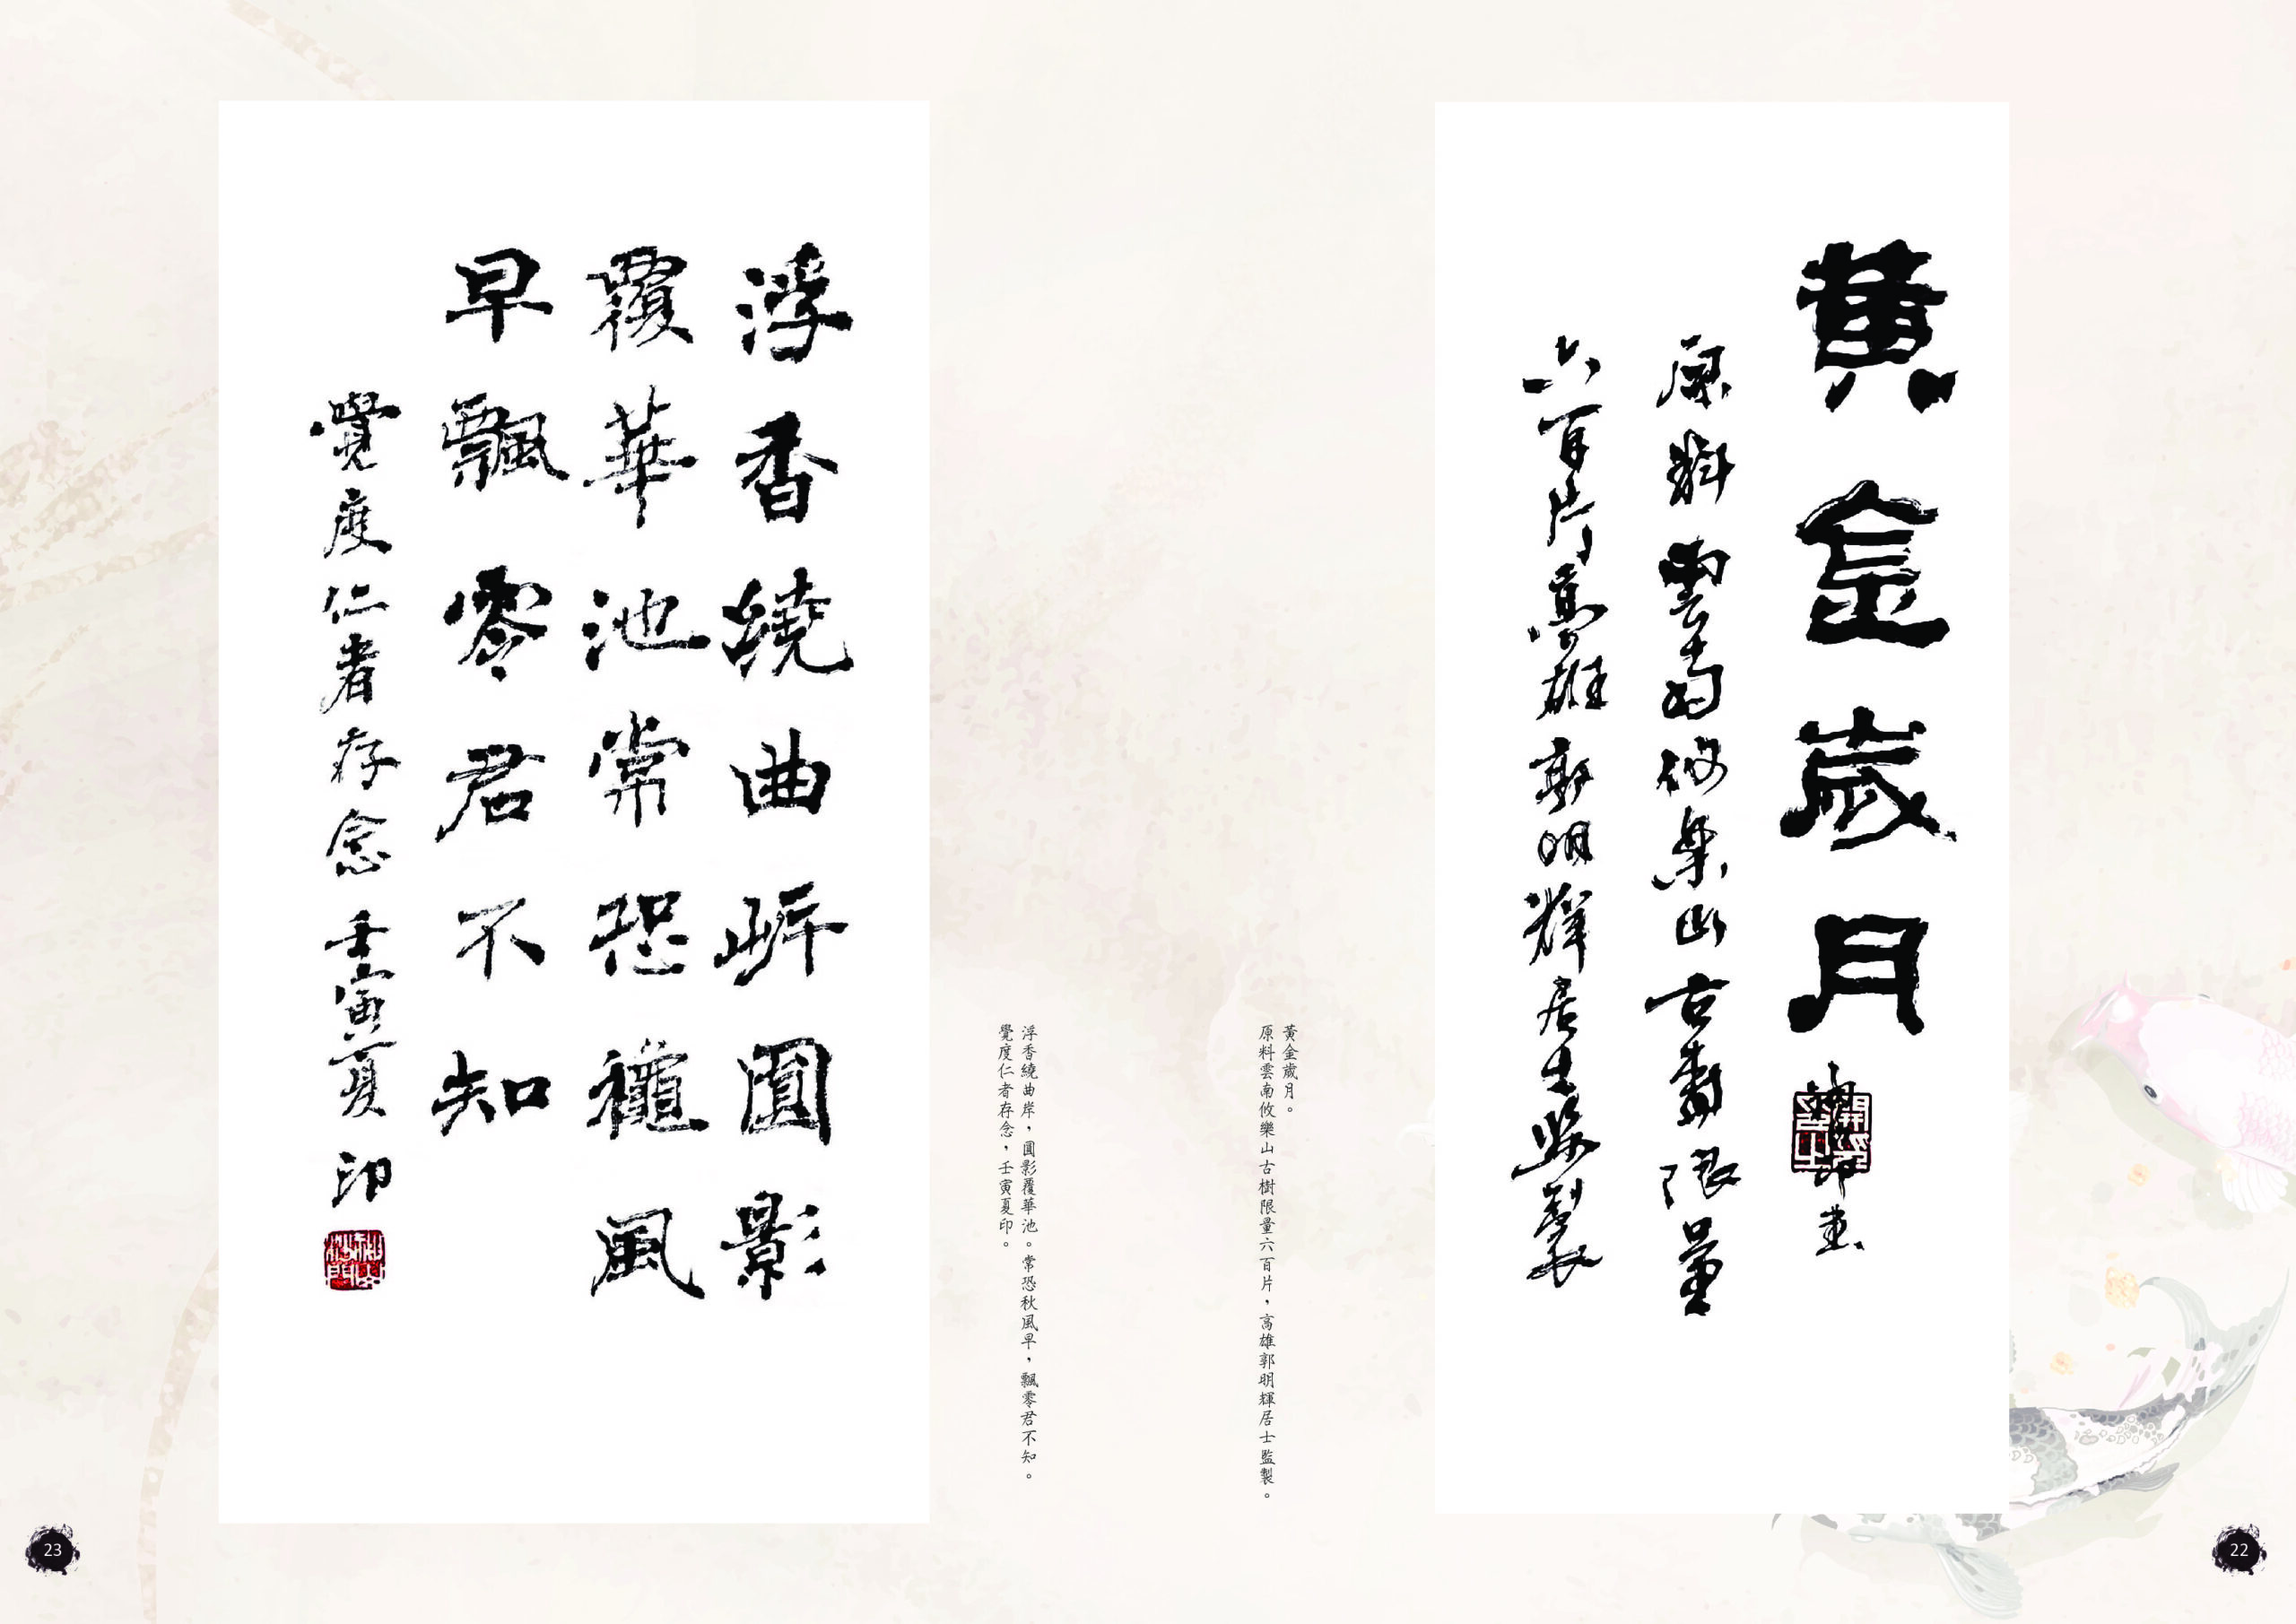 黃金歲月
印画
原料雲南攸樂山古樹限量
六百片高雄郭明輝居士監製
22
黃金歲月。
原料雲南攸樂山古樹限量六百片，高雄郭明輝居士監製。
浮香繞曲岸圓影
覆華池常恐穐風
早飄零君不知
覺度仁者存念壬寅夏印
浮香繞曲岸，圓影覆華池。常恐秋風早，飄零君不知。
覺度仁者存念，壬寅夏印。
23